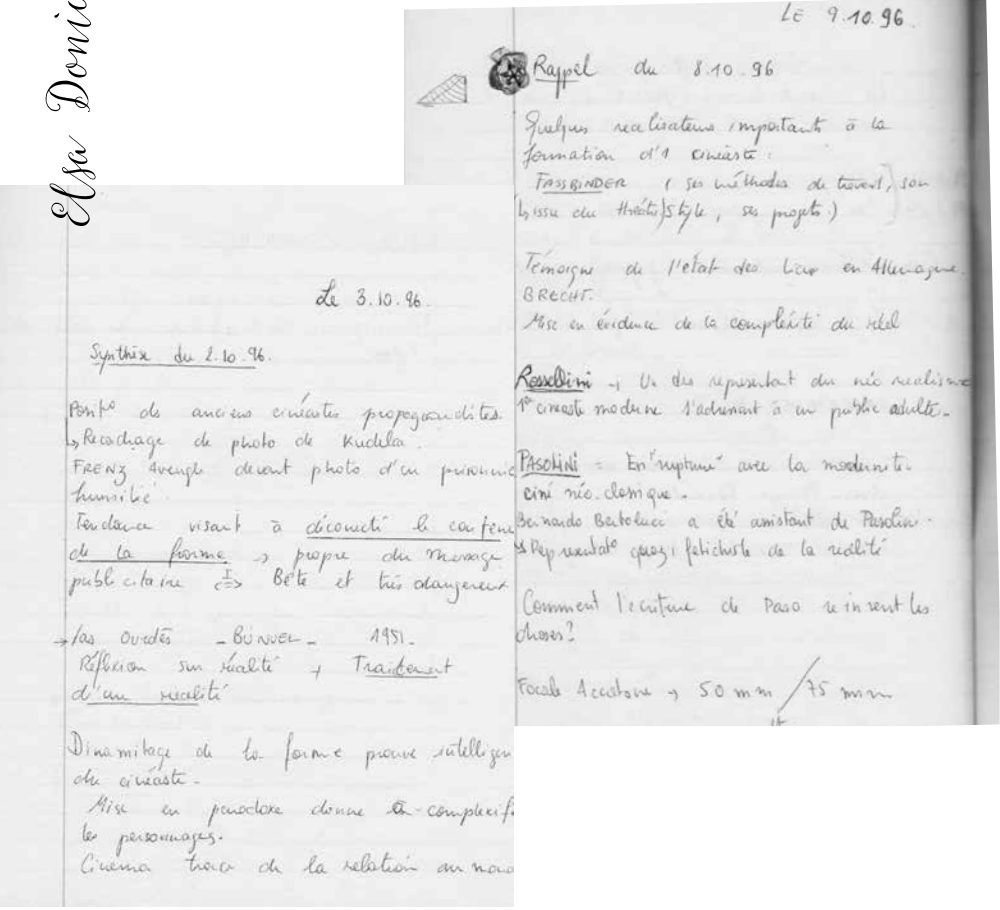 Elsa Doni
Le 3.10.96.
Synthèse du 2.10.96.
Posit° de anciens cinéastes propagandites.
↳ Recadrage de photo de Kudela.
FRENZ Aveugle devant photo d'un prisonnie
humilié.
Tendance visant à déconecté le conten
de la forme → propre du message
publicitaire <=> Bête et très dangereux
→ las Ovidés - BUNUEL - 1951.
Réflexion sur réalité → Traitement
d'une réalité
Dinamitage de la forme prouve intelligen
du cinéaste.
Mise en paradoxe donne complexif
les personnages.
Cinema trace de la relation au mon
LE 9.10.96.
Rappel du 8.10.96
Quelques realisateurs importants à la
formation d'1 cinéaste :
FASSBINDER ( ses méthodes de travail, son
↳ issu du théâtre) style, ses projets.)
Témoigne de l'état des lieux en Allemagne.
BRECHT.
Mise en évidence de la complexité du réel
Rossellini → Un des representant du néo realisme
1er cinéaste moderne s'adressant à un public adulte.
PASOLINI = En "rupture" avec la modernité.
ciné néo.classique.
Bernardo Bertolucci a été assistant de Pasolini.
↳ Représentat° quazi fetichiste de la réalité
Comment l'écriture de Paso réinvent les
choses?
Focale Accatone → 50 mm / 75 mm